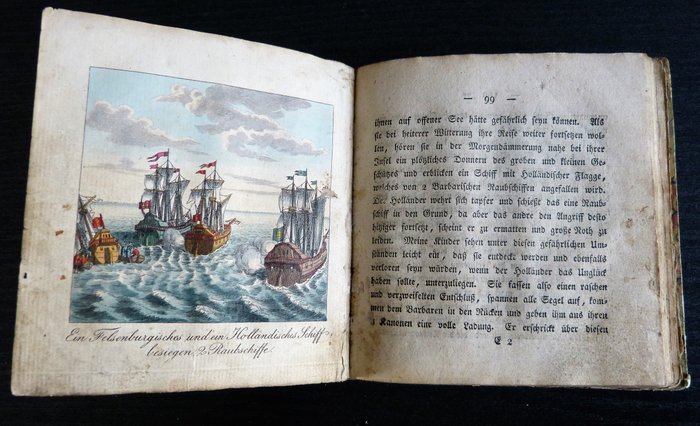 Ein Felsenburgisches und ein Holländisches Schiff
besiegen 2 Raubschiffe
— 99 —
ihnen auf offener See hätte gefährlich seyn können. Als
sie bei heiterer Witterung ihre Reise weiter fortsetzen wol-
len, hören sie in der Morgendämmerung nahe bei ihrer
Insel ein plötzliches Donnern des groben und kleinen Ge-
schützes und erblicken ein Schiff mit Holländischer Flagge,
welches von 2 Barbarischen Raubschiffen angefallen wird.
Der Holländer wehrt sich tapfer und schießt das eine Raub-
schiff in den Grund, da aber das andre den Angriff desto
hitziger fortsetzt, scheint er zu ermatten und große Noth zu
leiden. Meine Kinder sehen unter diesen gefährlichen Um-
ständen leicht ein, daß sie entdeckt werden und ebenfalls
verloren seyn würden, wenn der Holländer das Unglück
haben sollte, unterzuliegen. Sie fassen also einen raschen
und verzweifelten Entschluß, spannen alle Segel auf, kom-
men dem Barbaren in den Rücken und geben ihm aus ihren
Kanonen eine volle Ladung. Er erschrickt über diesen
E 2